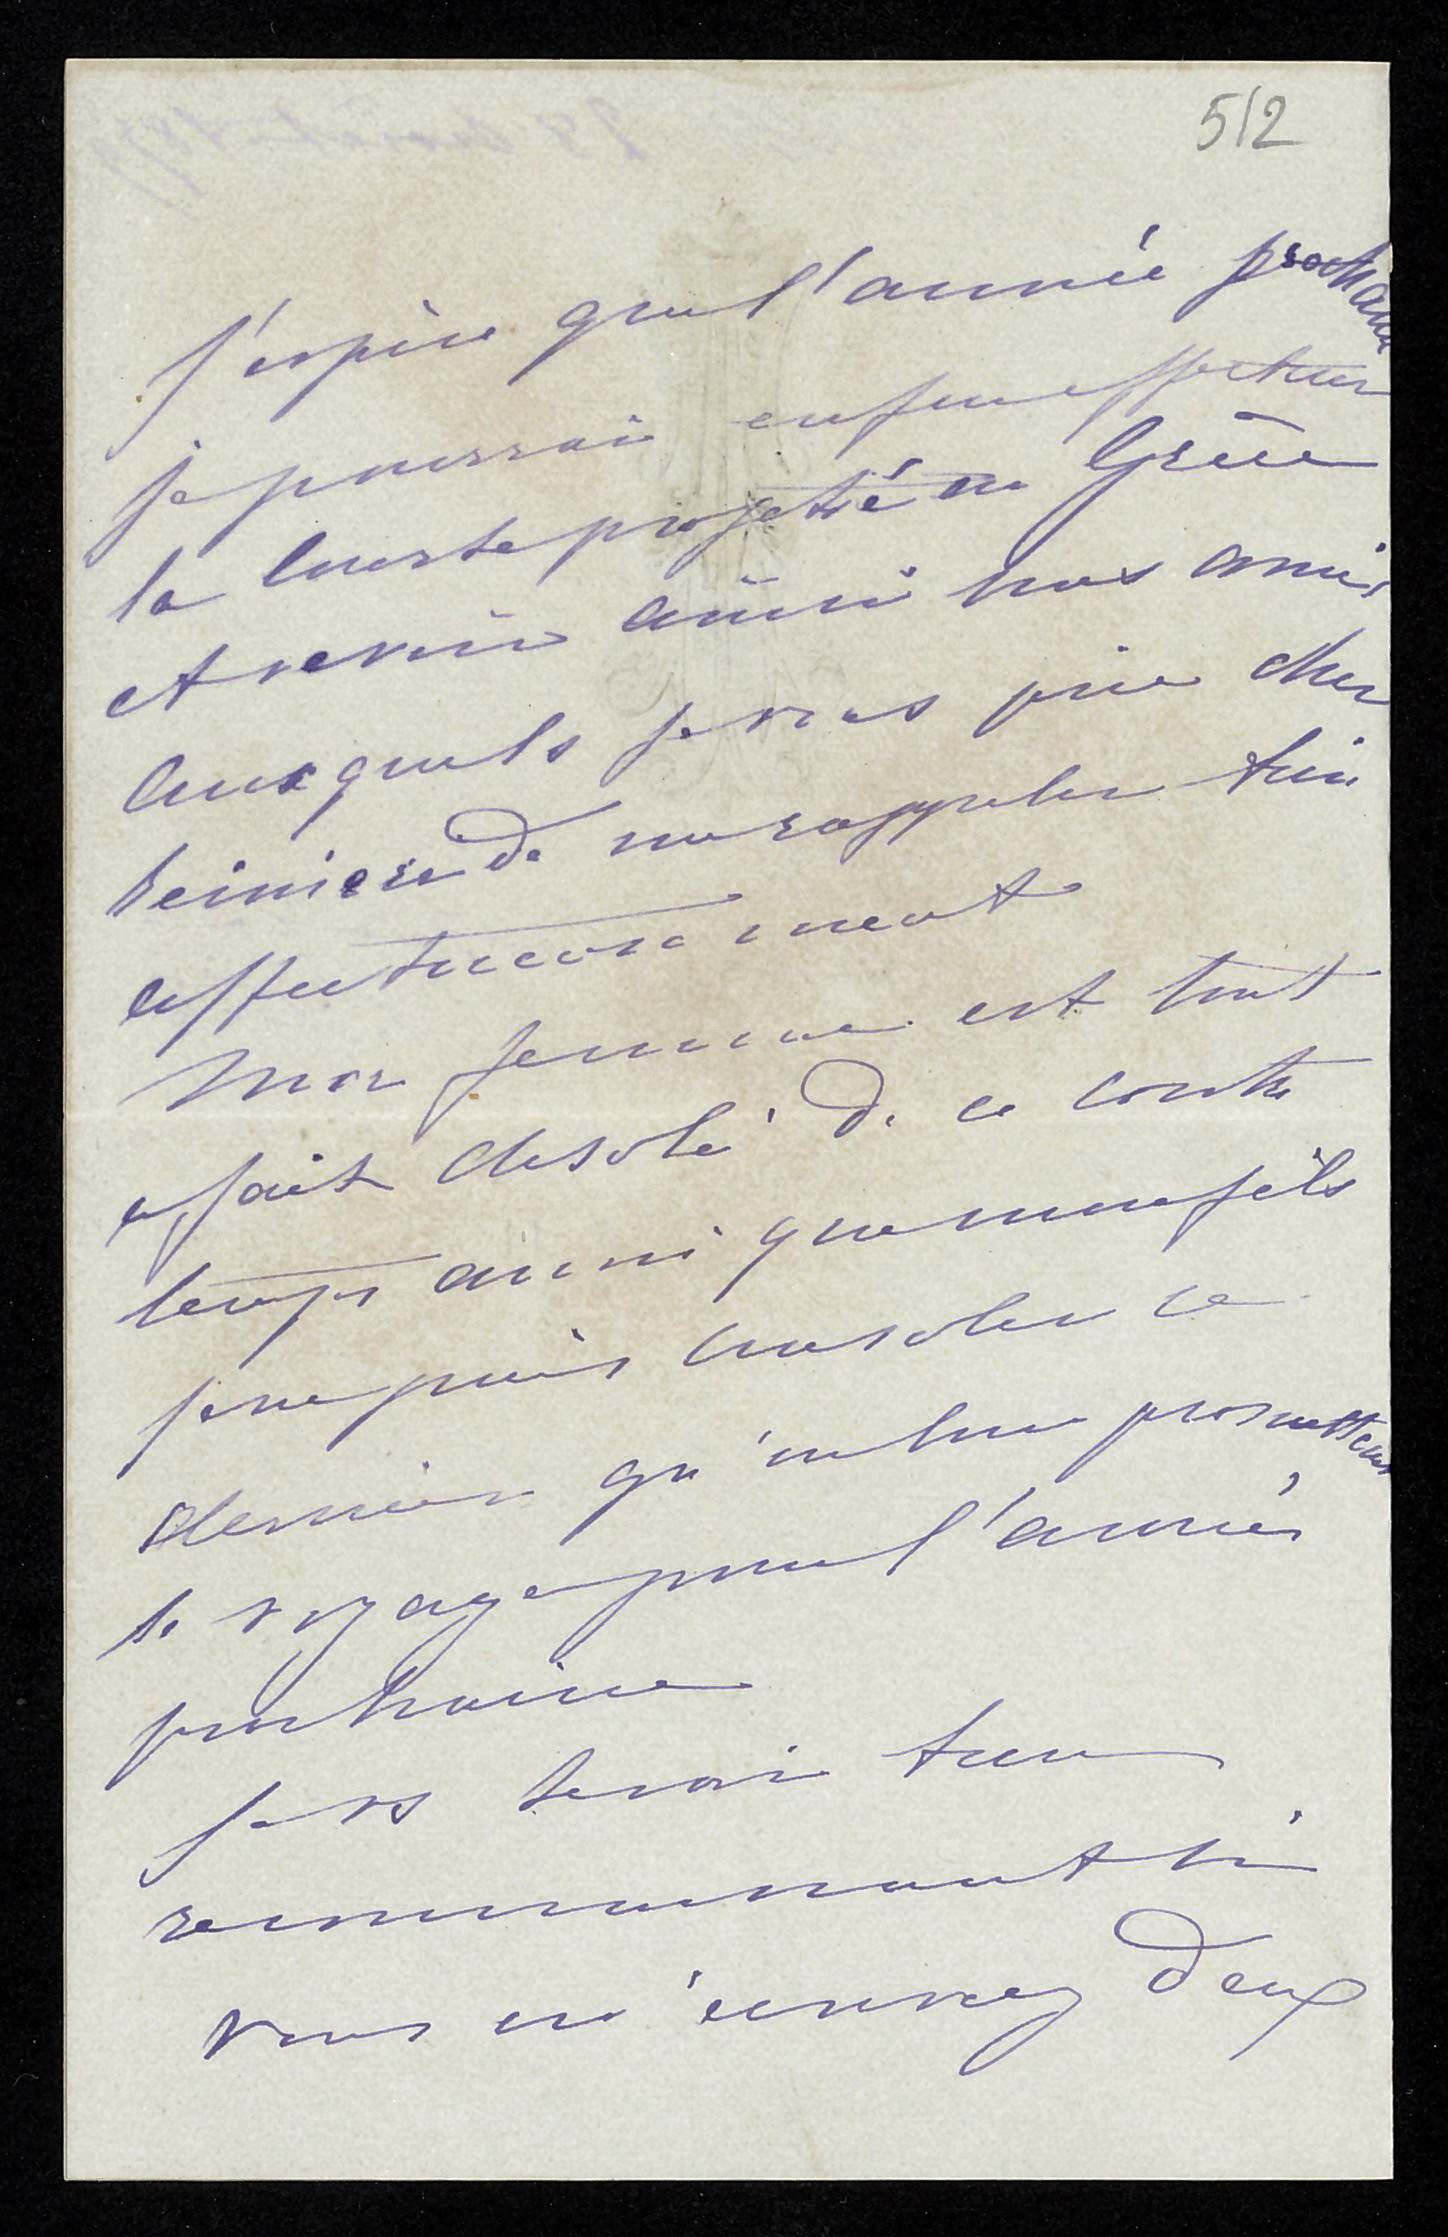 512
j'espère que l'année prochaine
je pourrai enfin effectuer
la course projetée en Grèce
et revoir ainsi nos amis
auxquels je vous prie cher
de me rappeler très
affectueusement
Mon femme est tout
a fait desolé de ce contre
temps aussi que mon fils
je ne puis consoler ce
dernier qu'en lui promettant
le voyage pour l'année
prochaine
je vs serai tres
reconnaissant si
vous m'envoyez deux